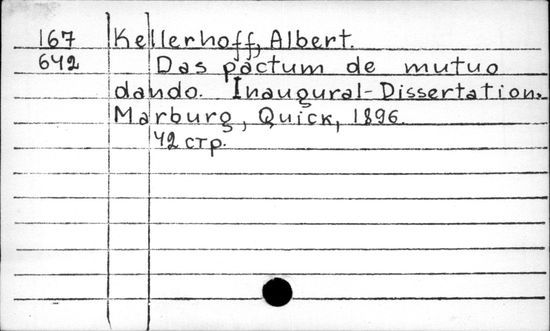 167 Kellerhoff, Albert.
642 Das pactum de mutuo
dando. Inaugural-Dissertation.
Marburg, Quick, 1896.
42 стр.